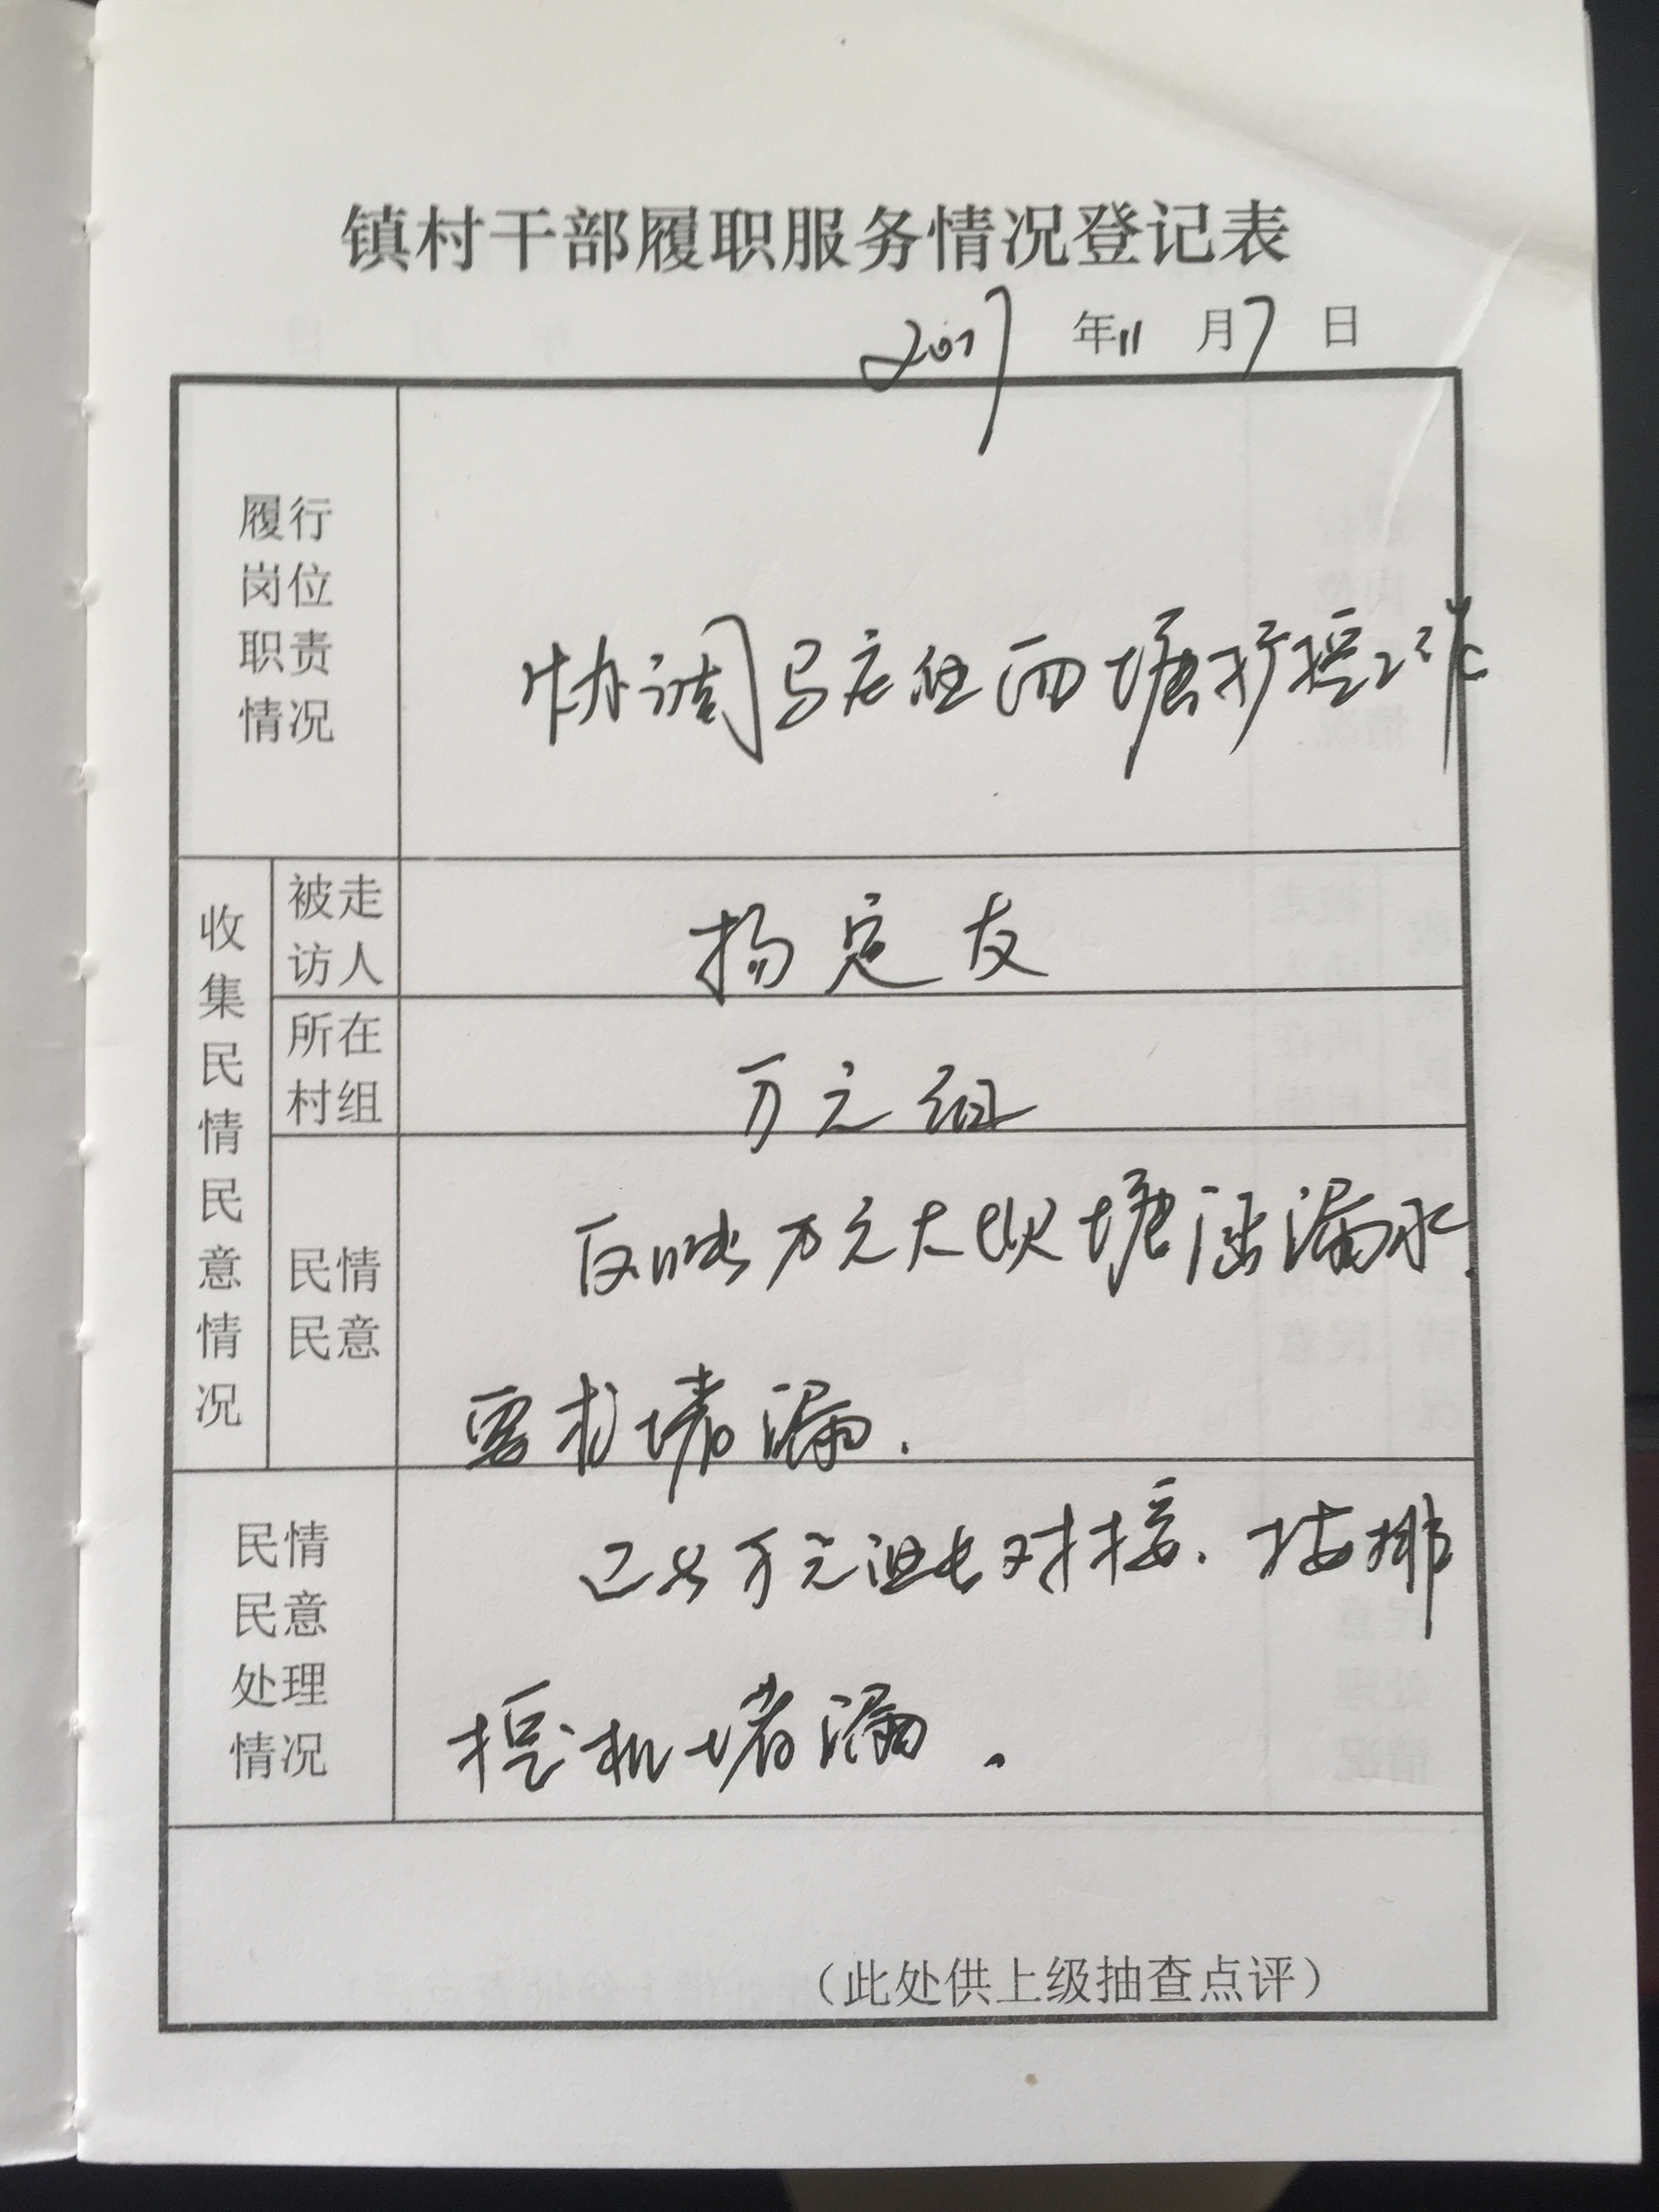 镇村干部履职服务情况登记表
2017年11月7日
履行
岗位
职责
情况
协调马庄组西塘扩挖
收集民情民意情况
被走
访人
扬定友
所在
村组
万元组
民情
民意
反映万元大坝塘涵漏水.
要求堵漏.
民情
民意
处理
情况
已与万元组长对接.按排
挖机堵漏.
（此处供上级抽查点评）